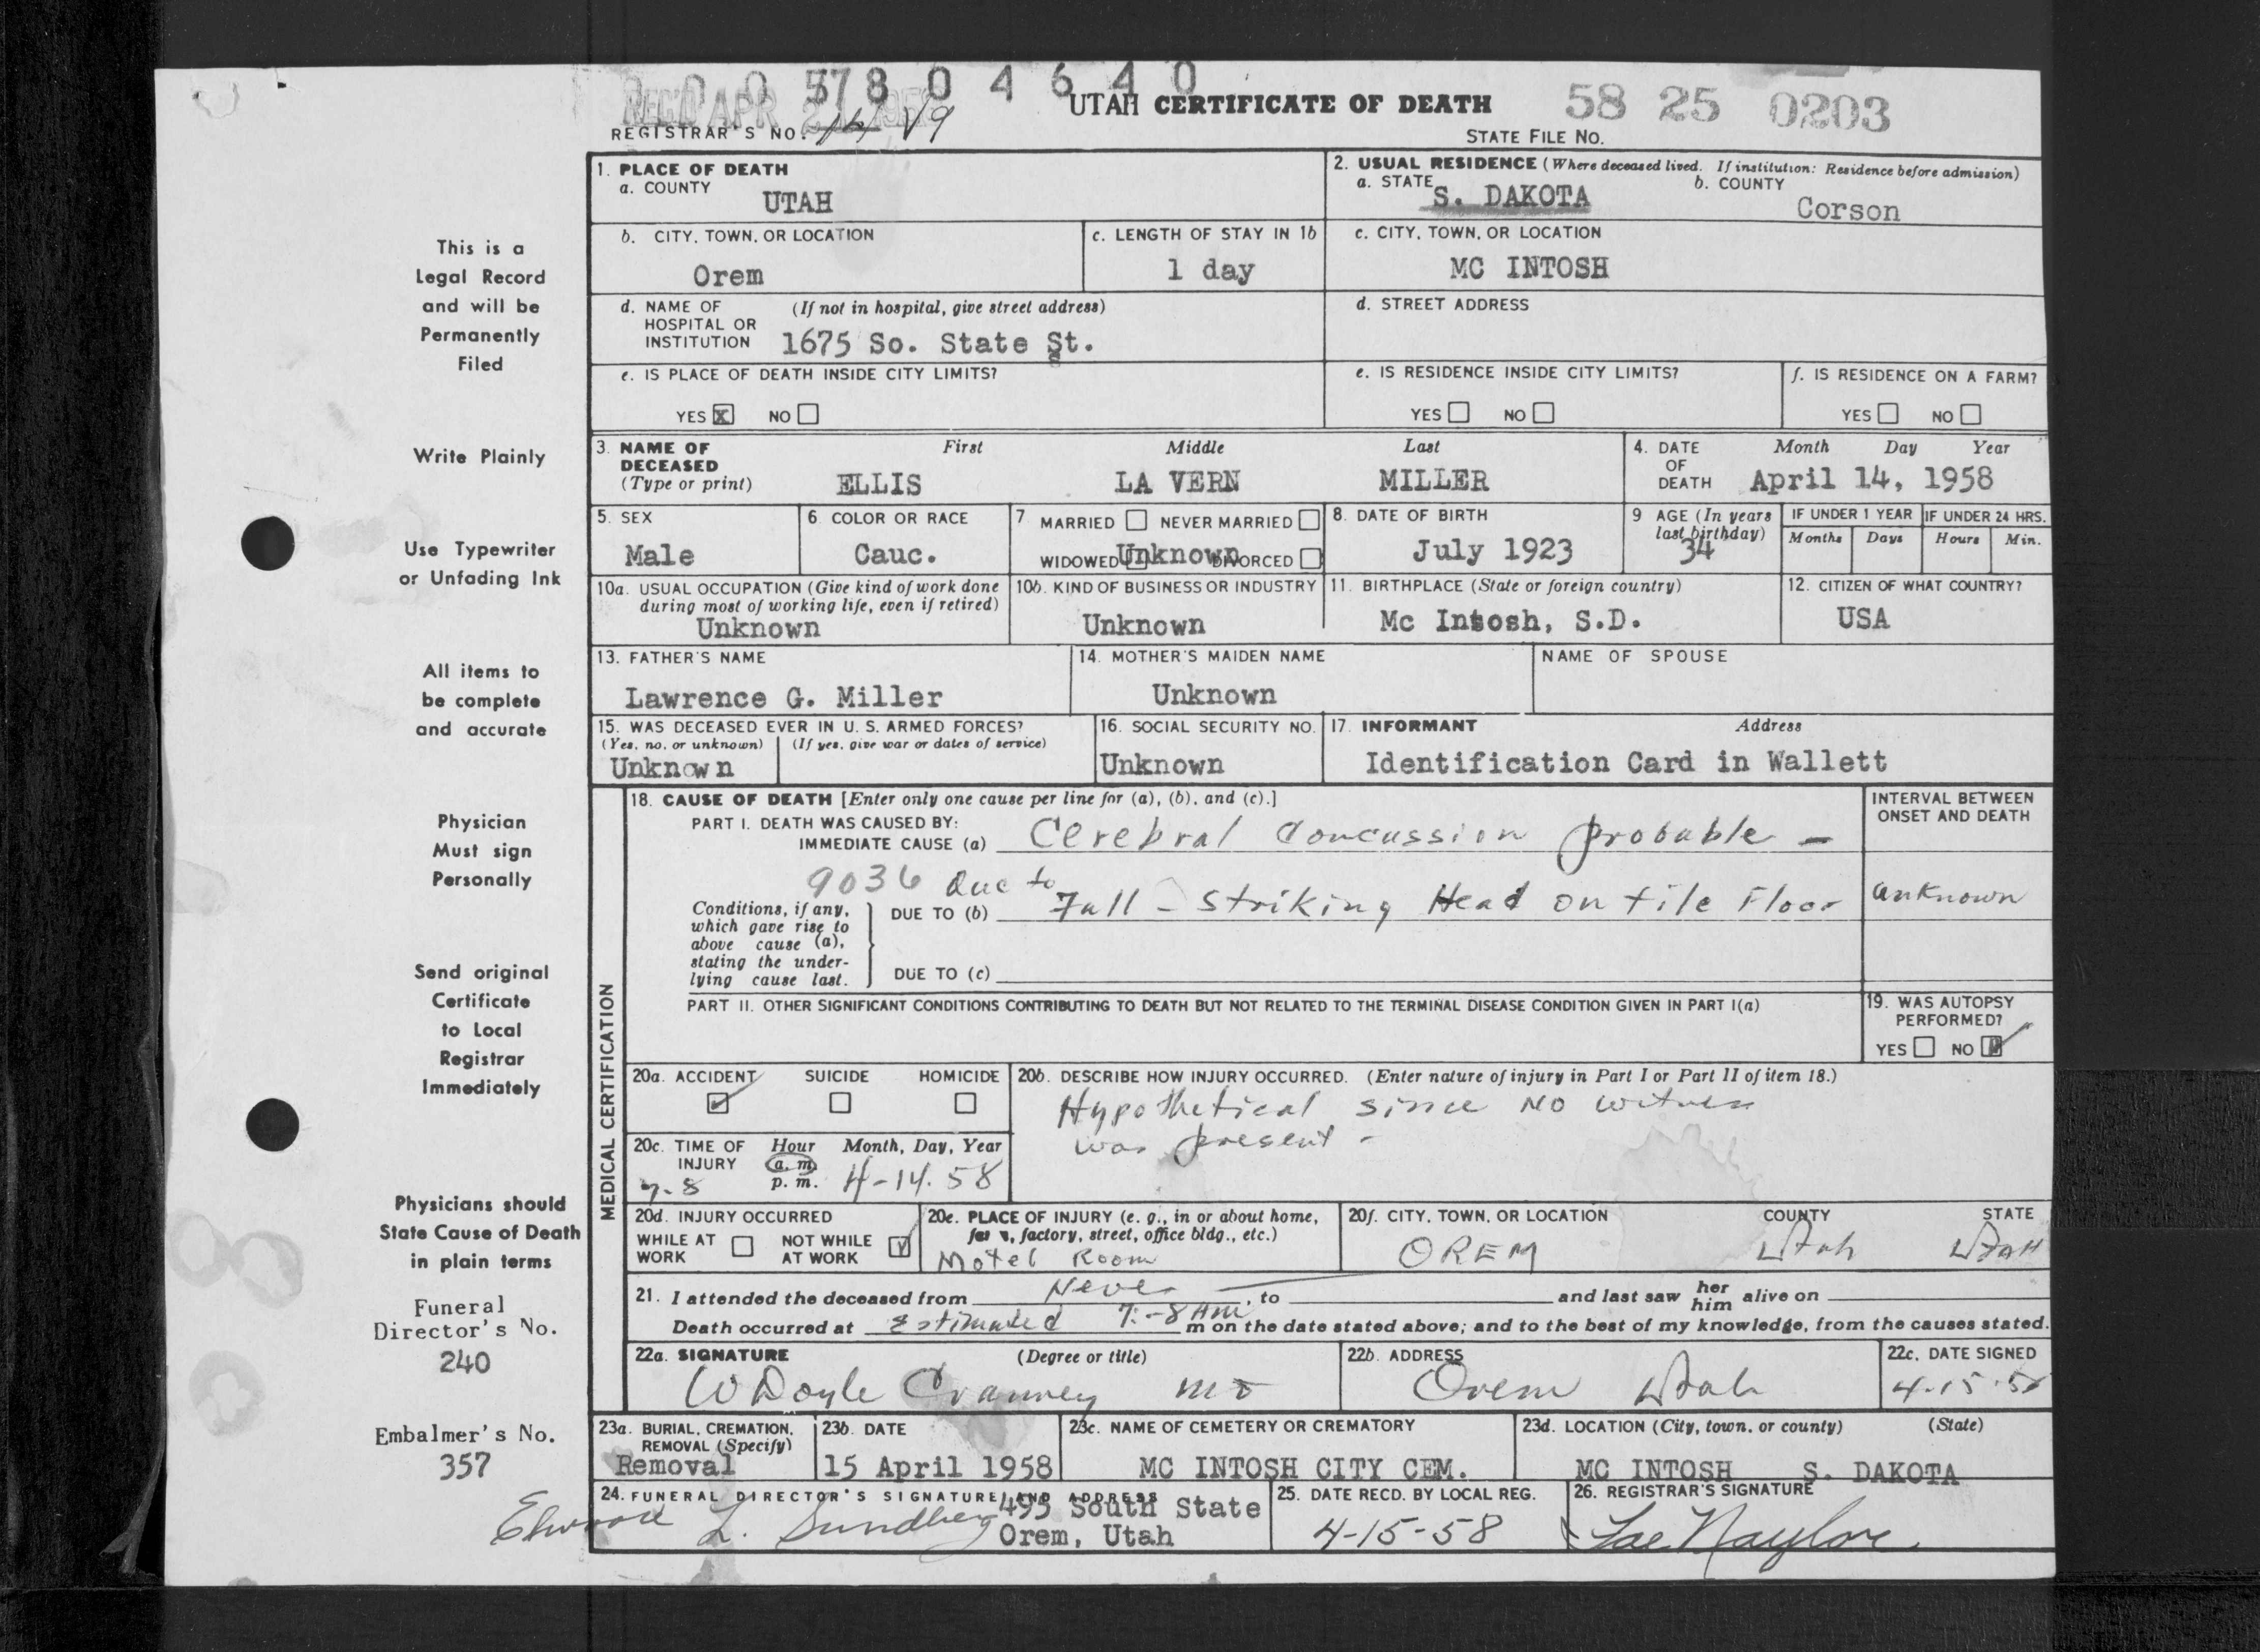 0 0 0 578 0 4 6 4 0
REC'D APR 21 1958
UTAH CERTIFICATE OF DEATH
58 25 0203
REGISTRAR'S NO. 14 19
STATE FILE NO.
This is a
Legal Record
and will be
Permanently
Filed
Write Plainly
Use Typewriter
or Unfading Ink
All items to
be complete
and accurate
Physician
Must sign
Personally
Send original
Certificate
to Local
Registrar
Immediately
Physicians should
State Cause of Death
in plain terms
Funeral
Director's No.
240
Embalmer's No.
357
1. PLACE OF DEATH
a. COUNTY
UTAH
2. USUAL RESIDENCE (Where deceased lived. If institution: Residence before admission)
a. STATE S. DAKOTA b. COUNTY Corson
b. CITY, TOWN, OR LOCATION
Orem
c. LENGTH OF STAY IN 1b
1 day
c. CITY, TOWN, OR LOCATION
MC INTOSH
d. NAME OF (If not in hospital, give street address)
HOSPITAL OR
INSTITUTION 1675 So. State St.
d. STREET ADDRESS
e. IS PLACE OF DEATH INSIDE CITY LIMITS?
YES X NO
e. IS RESIDENCE INSIDE CITY LIMITS?
YES NO
f. IS RESIDENCE ON A FARM?
YES NO
3. NAME OF First Middle Last
DECEASED
(Type or print) ELLIS LA VERN MILLER
4. DATE Month Day Year
OF
DEATH April 14, 1958
5. SEX
Male
6. COLOR OR RACE
Cauc.
7. MARRIED NEVER MARRIED
WIDOWED Unknown DIVORCED
8. DATE OF BIRTH
July 1923
9 AGE (In years
last birthday)
34
IF UNDER 1 YEAR IF UNDER 24 HRS.
Months Days Hours Min.
10a. USUAL OCCUPATION (Give kind of work done
during most of working life, even if retired)
Unknown
10b. KIND OF BUSINESS OR INDUSTRY
Unknown
11. BIRTHPLACE (State or foreign country)
Mc Intosh, S.D.
12. CITIZEN OF WHAT COUNTRY?
USA
13. FATHER'S NAME
Lawrence G. Miller
14. MOTHER'S MAIDEN NAME
Unknown
NAME OF SPOUSE
15. WAS DECEASED EVER IN U. S. ARMED FORCES?
(Yes, no, or unknown) (If yes, give war or dates of service)
Unknown
16. SOCIAL SECURITY NO.
Unknown
17. INFORMANT Address
Identification Card in Wallett
MEDICAL CERTIFICATION
18. CAUSE OF DEATH [Enter only one cause per line for (a), (b), and (c).]
INTERVAL BETWEEN
ONSET AND DEATH
PART I. DEATH WAS CAUSED BY:
IMMEDIATE CAUSE (a) Cerebral Concussion probable -
9036 due to
Conditions, if any,
which gave rise to
above cause (a),
stating the under-
lying cause last.
DUE TO (b) Fall - Striking Head on tile Floor unknown
DUE TO (c)
PART II. OTHER SIGNIFICANT CONDITIONS CONTRIBUTING TO DEATH BUT NOT RELATED TO THE TERMINAL DISEASE CONDITION GIVEN IN PART I(a)
19. WAS AUTOPSY
PERFORMED?
YES NO
20a. ACCIDENT SUICIDE HOMICIDE
20b. DESCRIBE HOW INJURY OCCURRED. (Enter nature of injury in Part I or Part II of item 18.)
Hypothetical since no witness
was present -
20c. TIME OF Hour Month, Day, Year
INJURY a. m.
7-8 p. m. 4-14-58
20d. INJURY OCCURRED
WHILE AT NOT WHILE
WORK AT WORK
20e. PLACE OF INJURY (e. g., in or about home,
farm, factory, street, office bldg., etc.)
Motel Room
20f. CITY, TOWN, OR LOCATION COUNTY STATE
OREM Utah UTAH
21. I attended the deceased from Never, to and last saw her him alive on
Death occurred at Estimated 7:-8 Am m on the date stated above; and to the best of my knowledge, from the causes stated.
22a. SIGNATURE (Degree or title)
W Doyle Cranney MD
22b. ADDRESS
Orem Utah
22c. DATE SIGNED
4-15-58
23a. BURIAL, CREMATION,
REMOVAL (Specify)
Removal
23b. DATE
15 April 1958
23c. NAME OF CEMETERY OR CREMATORY
MC INTOSH CITY CEM.
23d. LOCATION (City, town, or county) (State)
MC INTOSH S. DAKOTA
24. FUNERAL DIRECTOR'S SIGNATURE AND ADDRESS
Elwood L. Sundberg 495 South State
Orem, Utah
25. DATE RECD. BY LOCAL REG.
4-15-58
26. REGISTRAR'S SIGNATURE
Lae Naylor